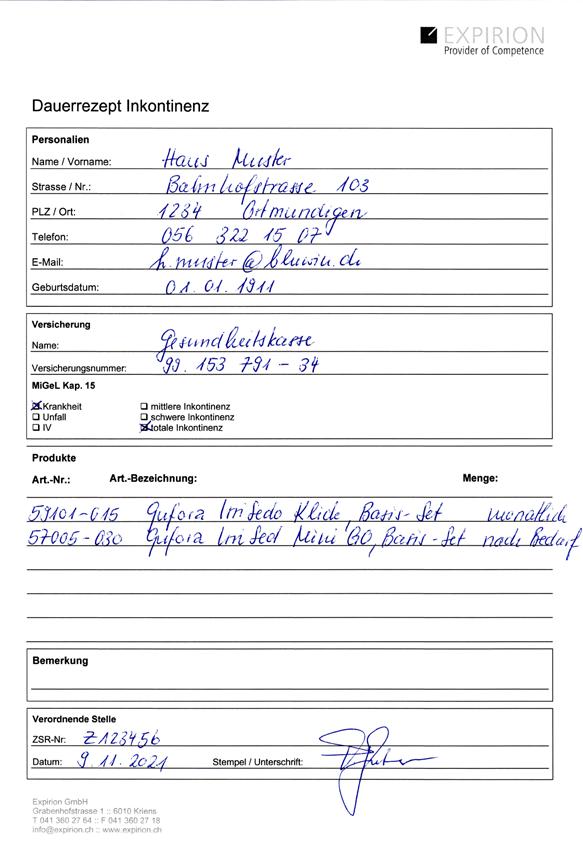 EXPIRION
Provider of Competence
Dauerrezept Inkontinenz
Personalien
Name / Vorname: Hans Muster
Strasse / Nr.: Bahnhofstrasse 103
PLZ / Ort: 1234 Ortmundigen
Telefon: 056 322 15 07
E-Mail: h.muster@bluwin.ch
Geburtsdatum: 01.01.1911
Versicherung
Name: Gesundheitskasse
Versicherungsnummer: 99.153 791-34
MiGeL Kap. 15
Krankheit mittlere Inkontinenz
Unfall schwere Inkontinenz
IV totale Inkontinenz
Produkte
Art.-Nr.: Art.-Bezeichnung: Menge:
59101-015 Qufora IrriSedo Klick, Basis-Set monatlich
57005-030 Qufora IrriSedo Mini GO, Basis-Set nach Bedarf
Bemerkung
Verordnende Stelle
ZSR-Nr: Z123456
Datum: 9.11.2021 Stempel / Unterschrift:
Expirion GmbH
Grabenhofstrasse 1 :: 6010 Kriens
T 041 360 27 64 :: F 041 360 27 18
info@expirion.ch :: www.expirion.ch